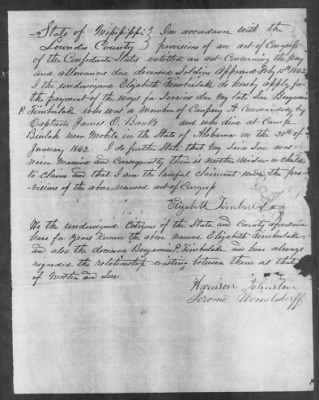 State of Mississippi } In accordance with the
Lowndes County } provisions of an act of Congress
of the Confederate States entitled an act concerning the pay
and allowances due deceased Soldiers Approved Feby 15th 1862
I the undersigned Elizabeth Kimberlake do hereby apply for
the payment of the wages for Service due my late Son Benjamin
P. Kimberlake who was a Member of Company A Commanded by
Captain James O. Banks and who died at Camp
Beulah near Mobile in the State of Alabama on the
January 1862. I do further State that my Said Son was
never Married and consequently there is neither widow or child
to claim and that I am the lawful claimant under the pro-
visions of the above named act of congress
Elizabeth
We the undersigned Citizens of the State and county aforesaid
have for years known the above named Elizabeth Kimberlake
and also the deceased Benjamin P. Kimberlake and have always
regarded the relationship existing between them as that
of Mother and Son.
Harrison Johnston
Jerome